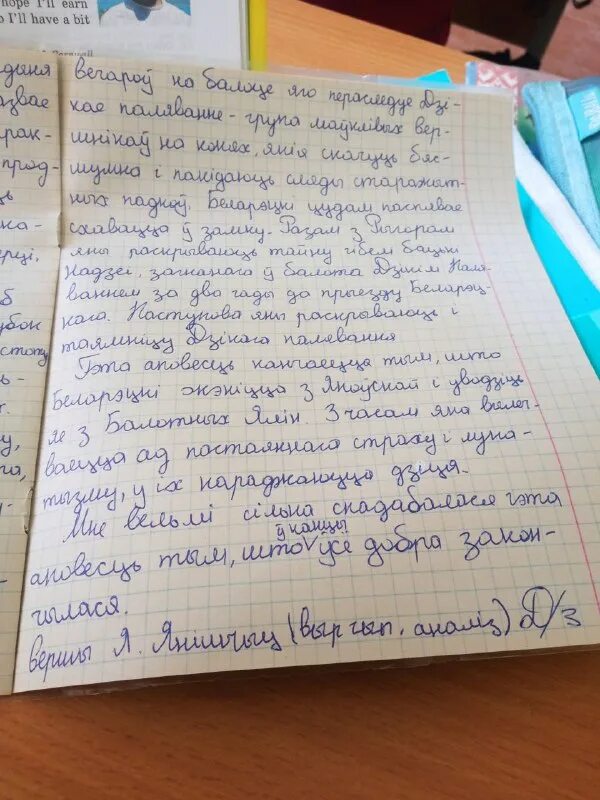 hope I'll earn
o I'll have a bit
адыня
азвае
рак-
прод-
вечароў на балоце яго пераследуе Дзі-
кае паляванне - група маўклівых вер-
шнікаў на конях, якія скачуць бяс-
шумна і пакідаюць сляды старажыт-
ных падкоў. Беларэцкі цудам паспявае
схавацца ў замку. Разам з Рыгорам
яны раскрываюць тайну гібелі бацькі
Надзеі, загнанага ў балота Дзікім Паля-
ваннем за два гады да прыезду Беларэц-
кага. Паступова яны раскрываюць і
таямніцу Дзікага палявання
Гэта аповесць канчаецца тым, што
Беларэцкі жэніцца з Яноўскай і увозіць
яе з Балотных Ялін. З часам яна вылеч-
ваецца ад пастаяннага страху і луна-
тызму, у іх нараджаюцца дзіця.
Мне вельмі сільна спадабалася гэта
аповесць тым, што ў канцы ўсё добра закон-
чылася.
вершы Я. Янішчыц (выр чып. аналіз) Д/З